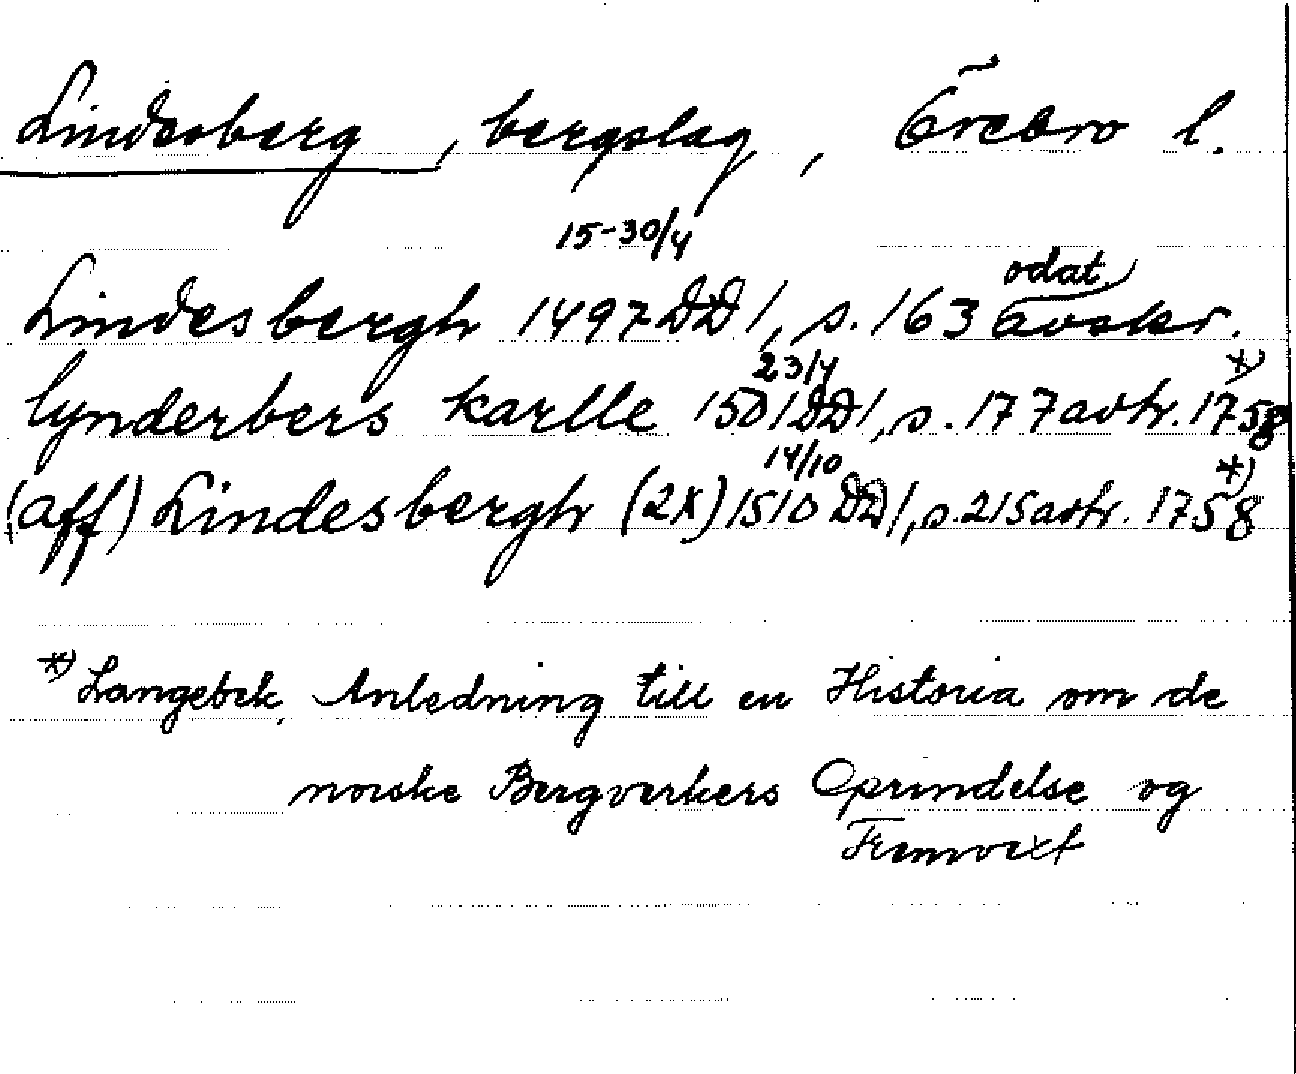 Lindesberg, bergslag, Örebro l.
15-30/4
Lindesbergh 1497 DD 1, s. 163 odat avskr.
23/4
lynderbers karlle 1501 DD 1, s. 177 avtr. 1758 *)
14/10
(aff) Lindesbergh (2x) 1510 DD 1, s. 215 avtr. 1758 *)
*) Langebek, Anledning till en Historia om de
norske Bergverkers Oprindelse og
Fremvext